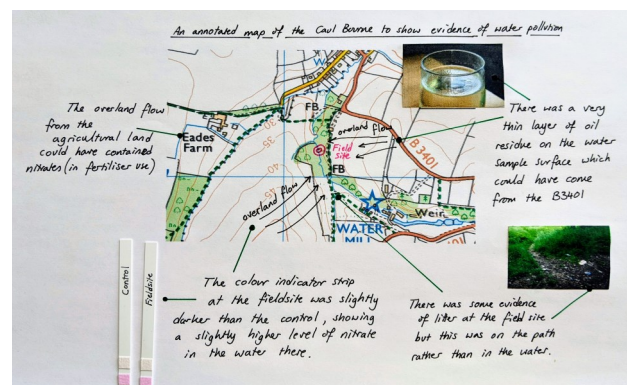 An annotated map of the Caul Bourne to show evidence of water pollution
The overland flow
from the
agricultural land
could have contained
nitrates (in fertiliser use)
Eades
Farm
FB
overland flow
Field
site
B3401
FB
overland flow
Weir
WATER
MILL
There was a very
thin layer of oil
residue on the water
sample surface which
could have come
from the B3401
Control
Fieldsite
The colour indicator strip
at the fieldsite was slightly
darker than the control, showing
a slightly higher level of nitrate
in the water there.
There was some evidence
of litter at the field site
but this was on the path
rather than in the water.